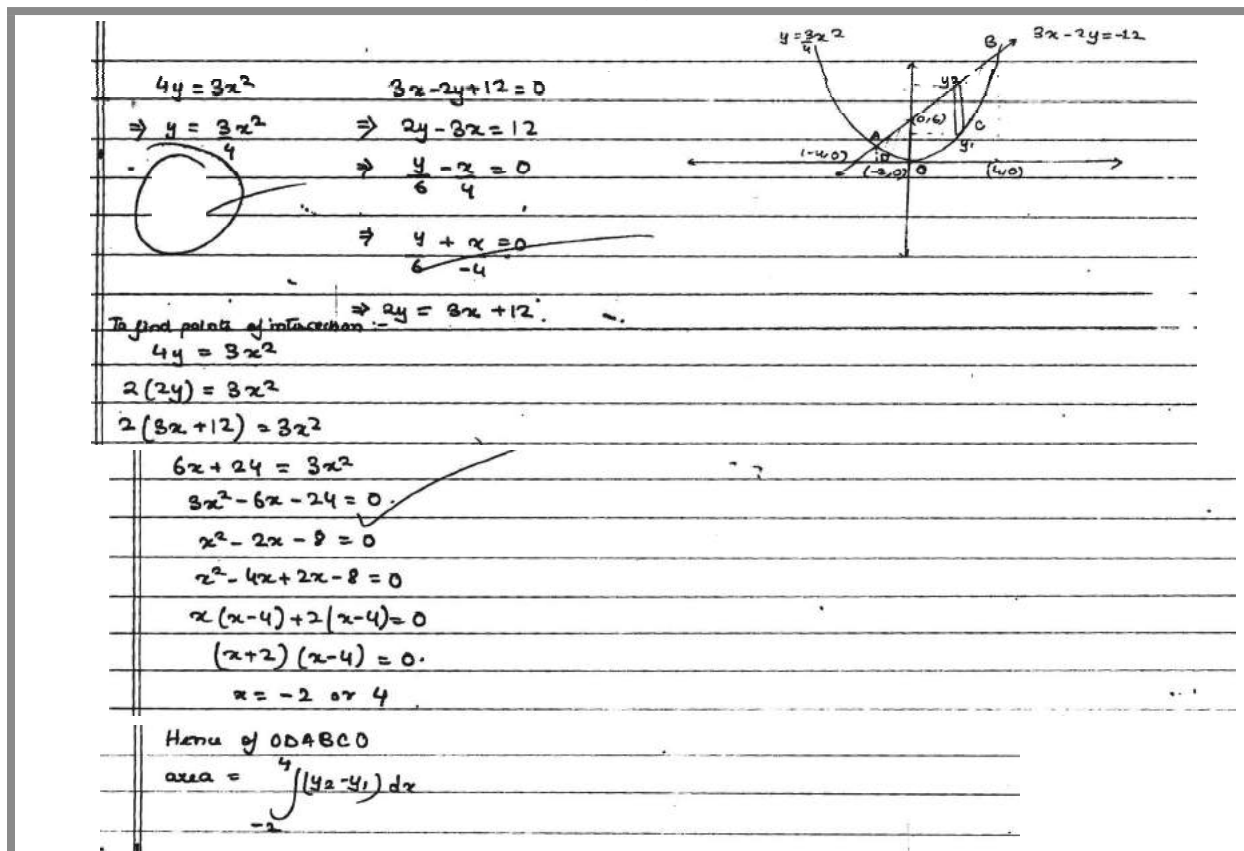 4y = 3x²
⇒ y = 3x²/4
3x - 2y + 12 = 0
⇒ 2y - 3x = 12
⇒ y/6 - x/4 = 0
⇒ y/6 + x/-4 = 0
⇒ 2y = 3x + 12.
y = 3/4 x²
3x - 2y = -12
B
y2
(0,6)
C
A
y1
(-4,0)
D
(-2,0)
O
(4,0)
To find points of intersection :-
4y = 3x²
2(2y) = 3x²
2(3x + 12) = 3x²
6x + 24 = 3x²
3x² - 6x - 24 = 0.
x² - 2x - 8 = 0
x² - 4x + 2x - 8 = 0
x(x-4) + 2(x-4) = 0
(x+2)(x-4) = 0.
x = -2 or 4
Hence of ODABCO
area = ∫₋₂⁴ (y₂ - y₁) dx